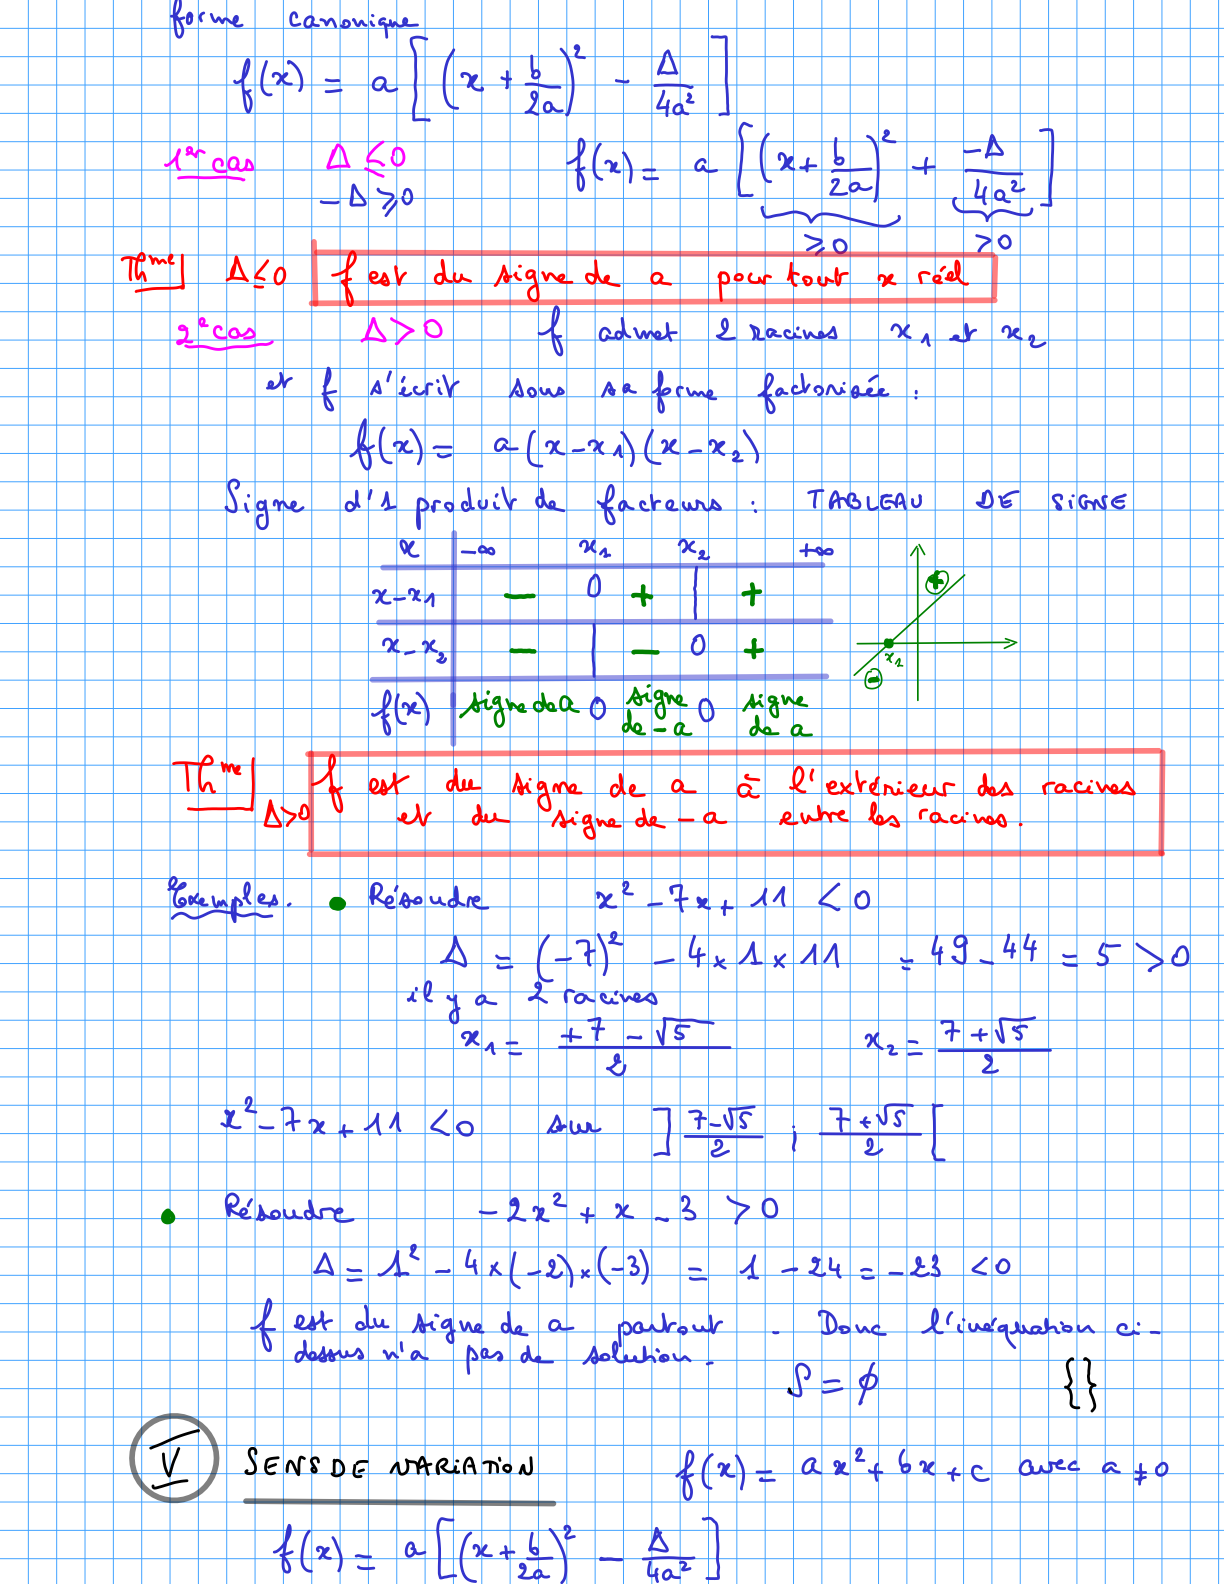 forme canonique
f(x) = a [ (x + b/2a)² - Δ/4a² ]
1er cas Δ ≤ 0 f(x) = a [ (x + b/2a)² + -Δ/4a² ]
- Δ ⩾ 0 ⩾ 0 > 0
Thme Δ ≤ 0 f est du signe de a pour tout x réel
2e cas Δ > 0 f admet 2 racines x₁ et x₂
et f s'écrit sous sa forme factorisée :
f(x) = a (x - x₁) (x - x₂)
Signe d'1 produit de facteurs : TABLEAU DE SIGNE
x -∞ x₁ x₂ +∞
x - x₁ - 0 + | +
x - x₂ - | - 0 +
f(x) signe de a 0 signe de - a 0 signe de a
+
x₁
-
Thme Δ > 0 f est du signe de a à l'extérieur des racines
et du signe de - a entre les racines.
Exemples. • Résoudre x² - 7x + 11 < 0
Δ = (-7)² - 4 × 1 × 11 = 49 - 44 = 5 > 0
il y a 2 racines
x₁ = +7 - √5 / 2 x₂ = 7 + √5 / 2
x² - 7x + 11 < 0 sur ] 7-√5 / 2 ; 7+√5 / 2 [
• Résoudre - 2x² + x - 3 > 0
Δ = 1² - 4 × (-2) × (-3) = 1 - 24 = -23 < 0
f est du signe de a partout . Donc l'inéquation ci-
dessus n'a pas de solution.
S = ϕ {}
V SENS DE VARIATION f(x) = ax² + bx + c avec a ≠ 0
f(x) = a [ (x + b/2a)² - Δ/4a² ]